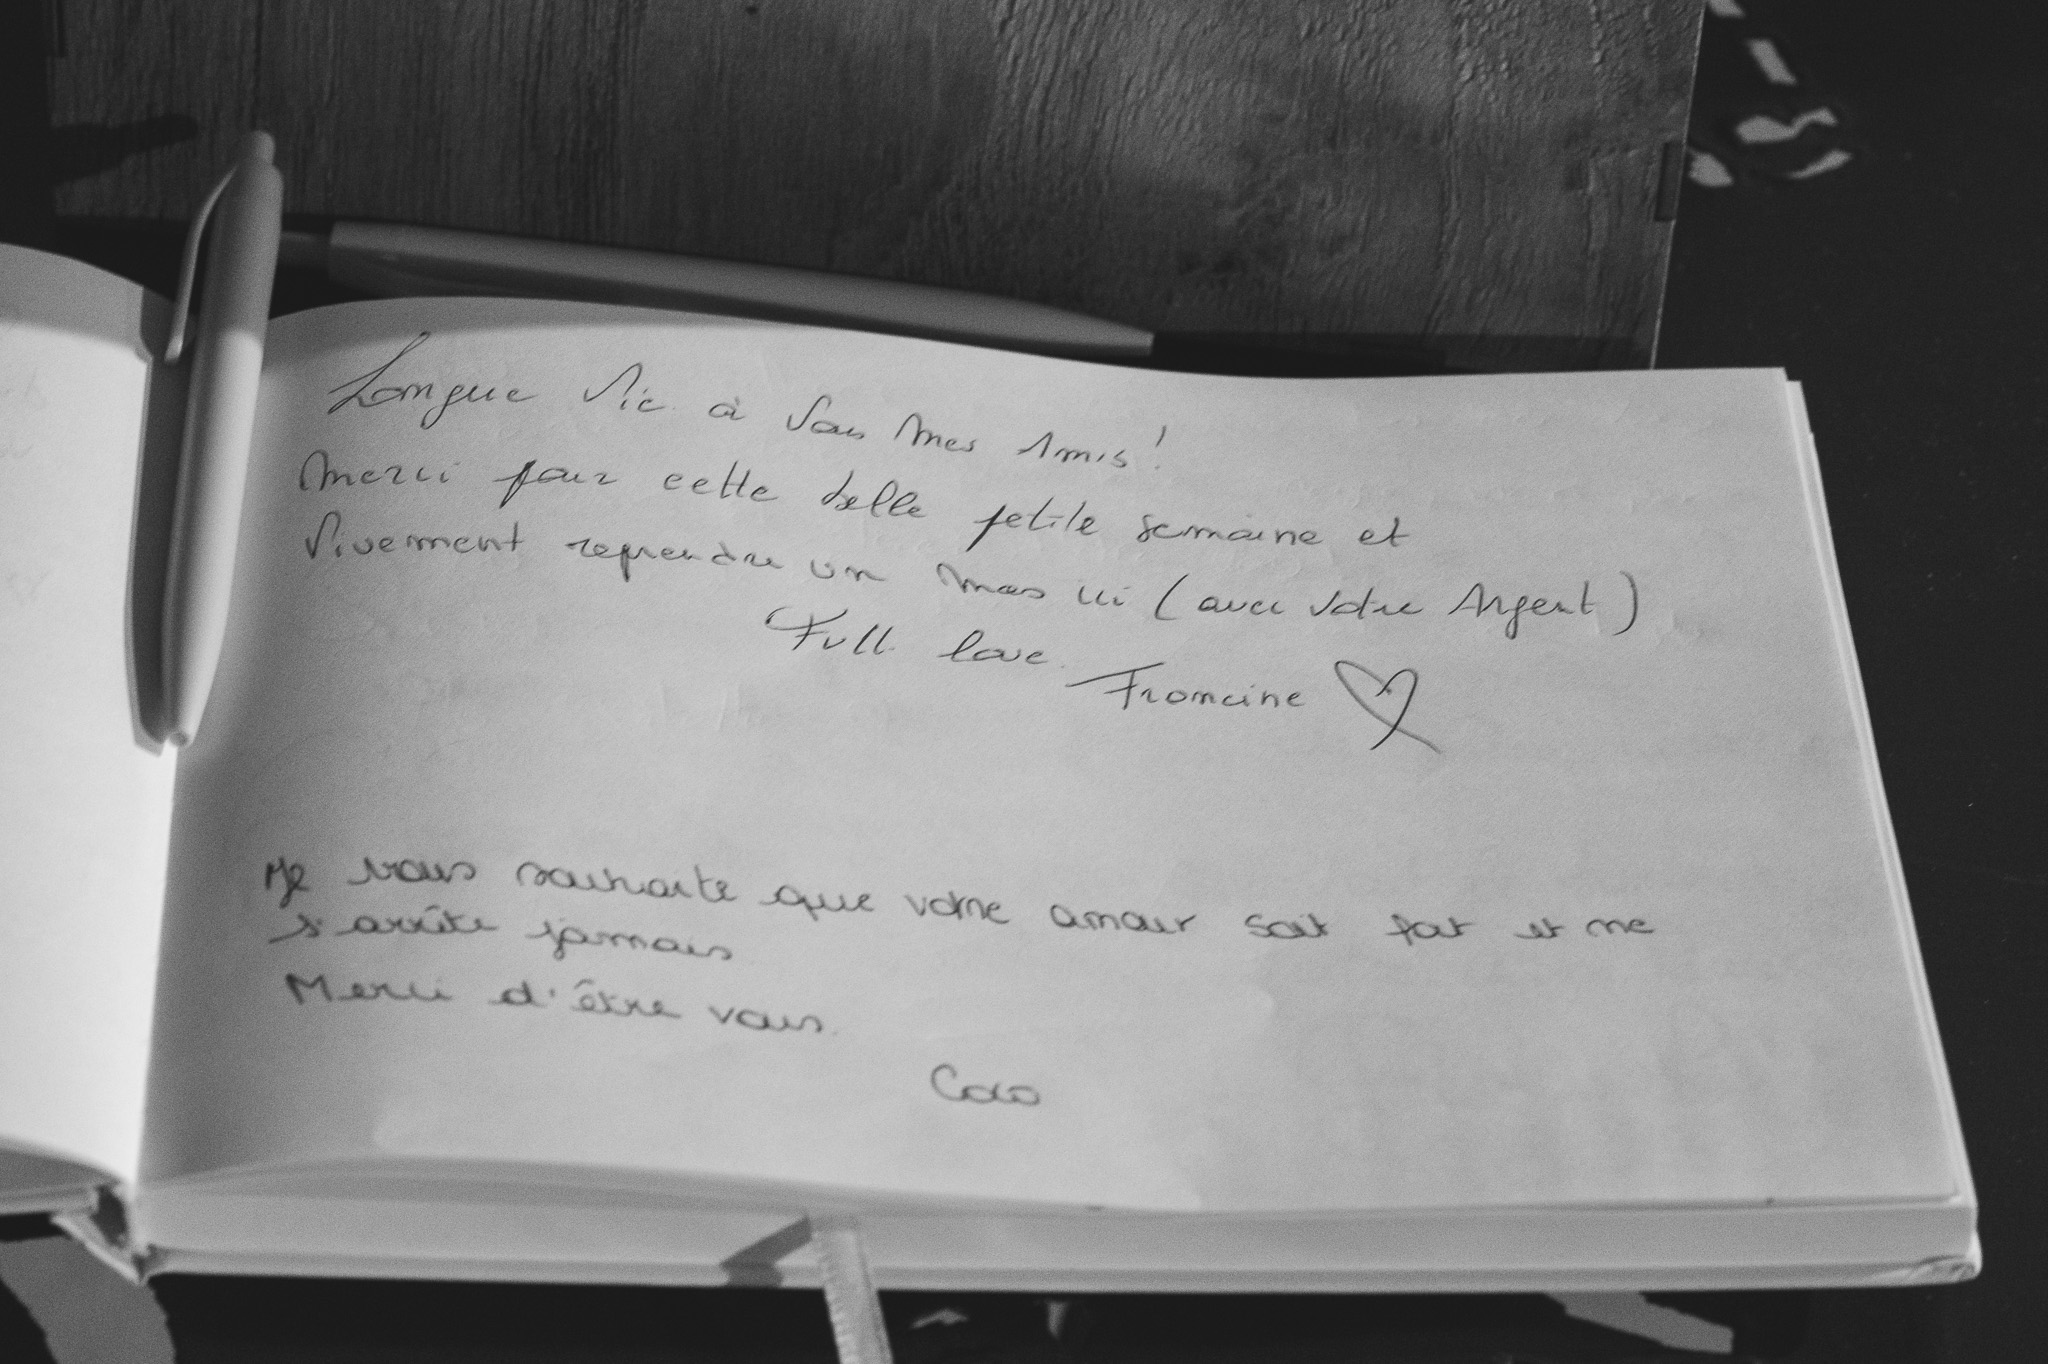 Longue Vie à Vous Mes Amis!
Merci pour cette belle petite semaine et
Vivement reprendre un mas ici (avec votre Argent)
Full love.
Francine ♡
Je vous souhaite que votre amour soit fort et ne
s'arrête jamais
Merci d'être vous.
Coco